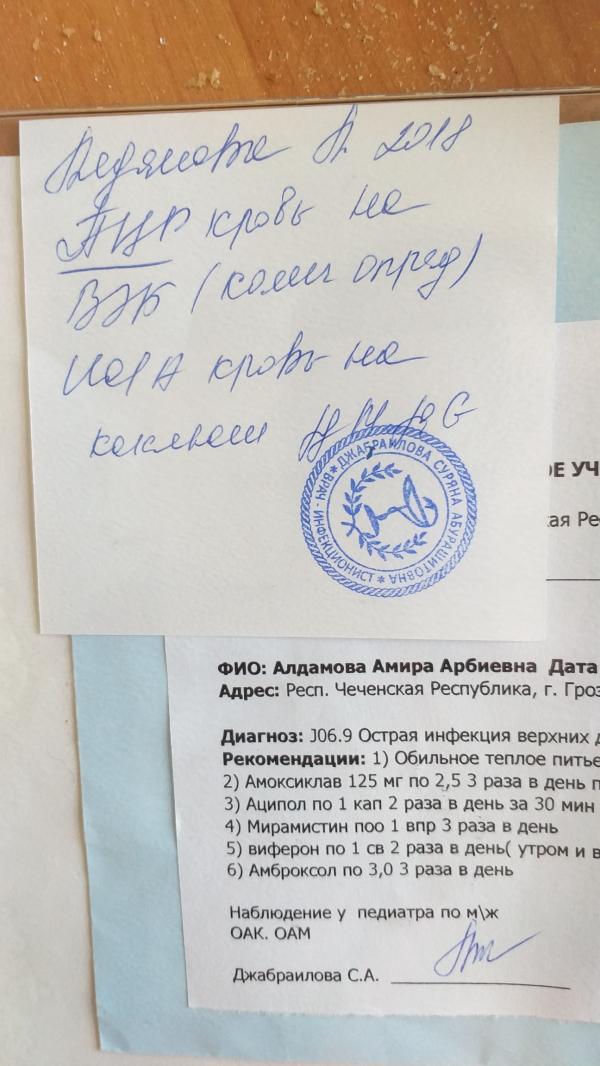 А. 2018
ПЦР кровь на
ВЭБ (колич опред)
ИФА кровь на
коклюш Ig M, Ig G
ВРАЧ - ИНФЕКЦИОНИСТ * ДЖАБРАИЛОВА СУРЯНА АБУРАШИТОВНА *
ОЕ УЧ
кая Ре
ФИО: Алдамова Амира Арбиевна Дата
Адрес: Респ. Чеченская Республика, г. Гроз
Диагноз: J06.9 Острая инфекция верхних д
Рекомендации: 1) Обильное теплое питье
2) Амоксиклав 125 мг по 2,5 3 раза в день п
3) Аципол по 1 кап 2 раза в день за 30 мин
4) Мирамистин поо 1 впр 3 раза в день
5) виферон по 1 св 2 раза в день( утром и в
6) Амброксол по 3,0 3 раза в день
Наблюдение у педиатра по м\ж
ОАК. ОАМ
Джабраилова С.А.